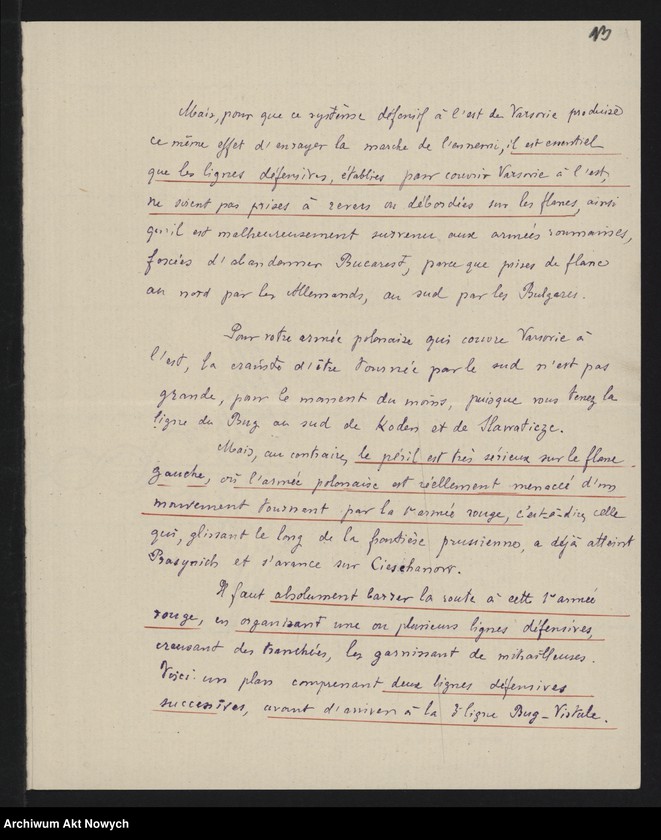 13
Mais, pour que ce système défensif à l'est de Varsovie produise
ce même effet d'enrayer la marche de l'ennemi, il est essentiel
que les lignes défensives, établies pour couvrir Varsovie à l'est,
ne soient pas prises à revers ou débordées sur les flancs, ainsi
qu'il est malheureusement survenu aux armées roumaines,
forcées d'abandonner Bucarest, parce que prises de flanc
au nord par les Allemands, au sud par les Bulgares.
Pour votre armée polonaise qui couvre Varsovie à
l'est, la crainte d'être tournée par le sud n'est pas
grande, pour le moment du moins, puisque vous tenez la
ligne du Bug au sud de Koden et de Slawaticze.
Mais, au contraire, le péril est très sérieux sur le flanc
gauche, où l'armée polonaise est réellement menacée d'un
mouvement tournant par la armée rouge, c'est-à-dire celle
qui, glissant le long de la frontière prussienne, a déjà atteint
Prasnich et s'avance sur Ciechanow.
Il faut absolument barrer la route à cette armée
rouge, en organisant une ou plusieurs lignes défensives,
creusant des tranchées, les garnissant de mitrailleuses.
Voici un plan comprenant deux lignes défensives
successives, avant d'arriver à la ligne Bug-Vistule.
Archiwum Akt Nowych